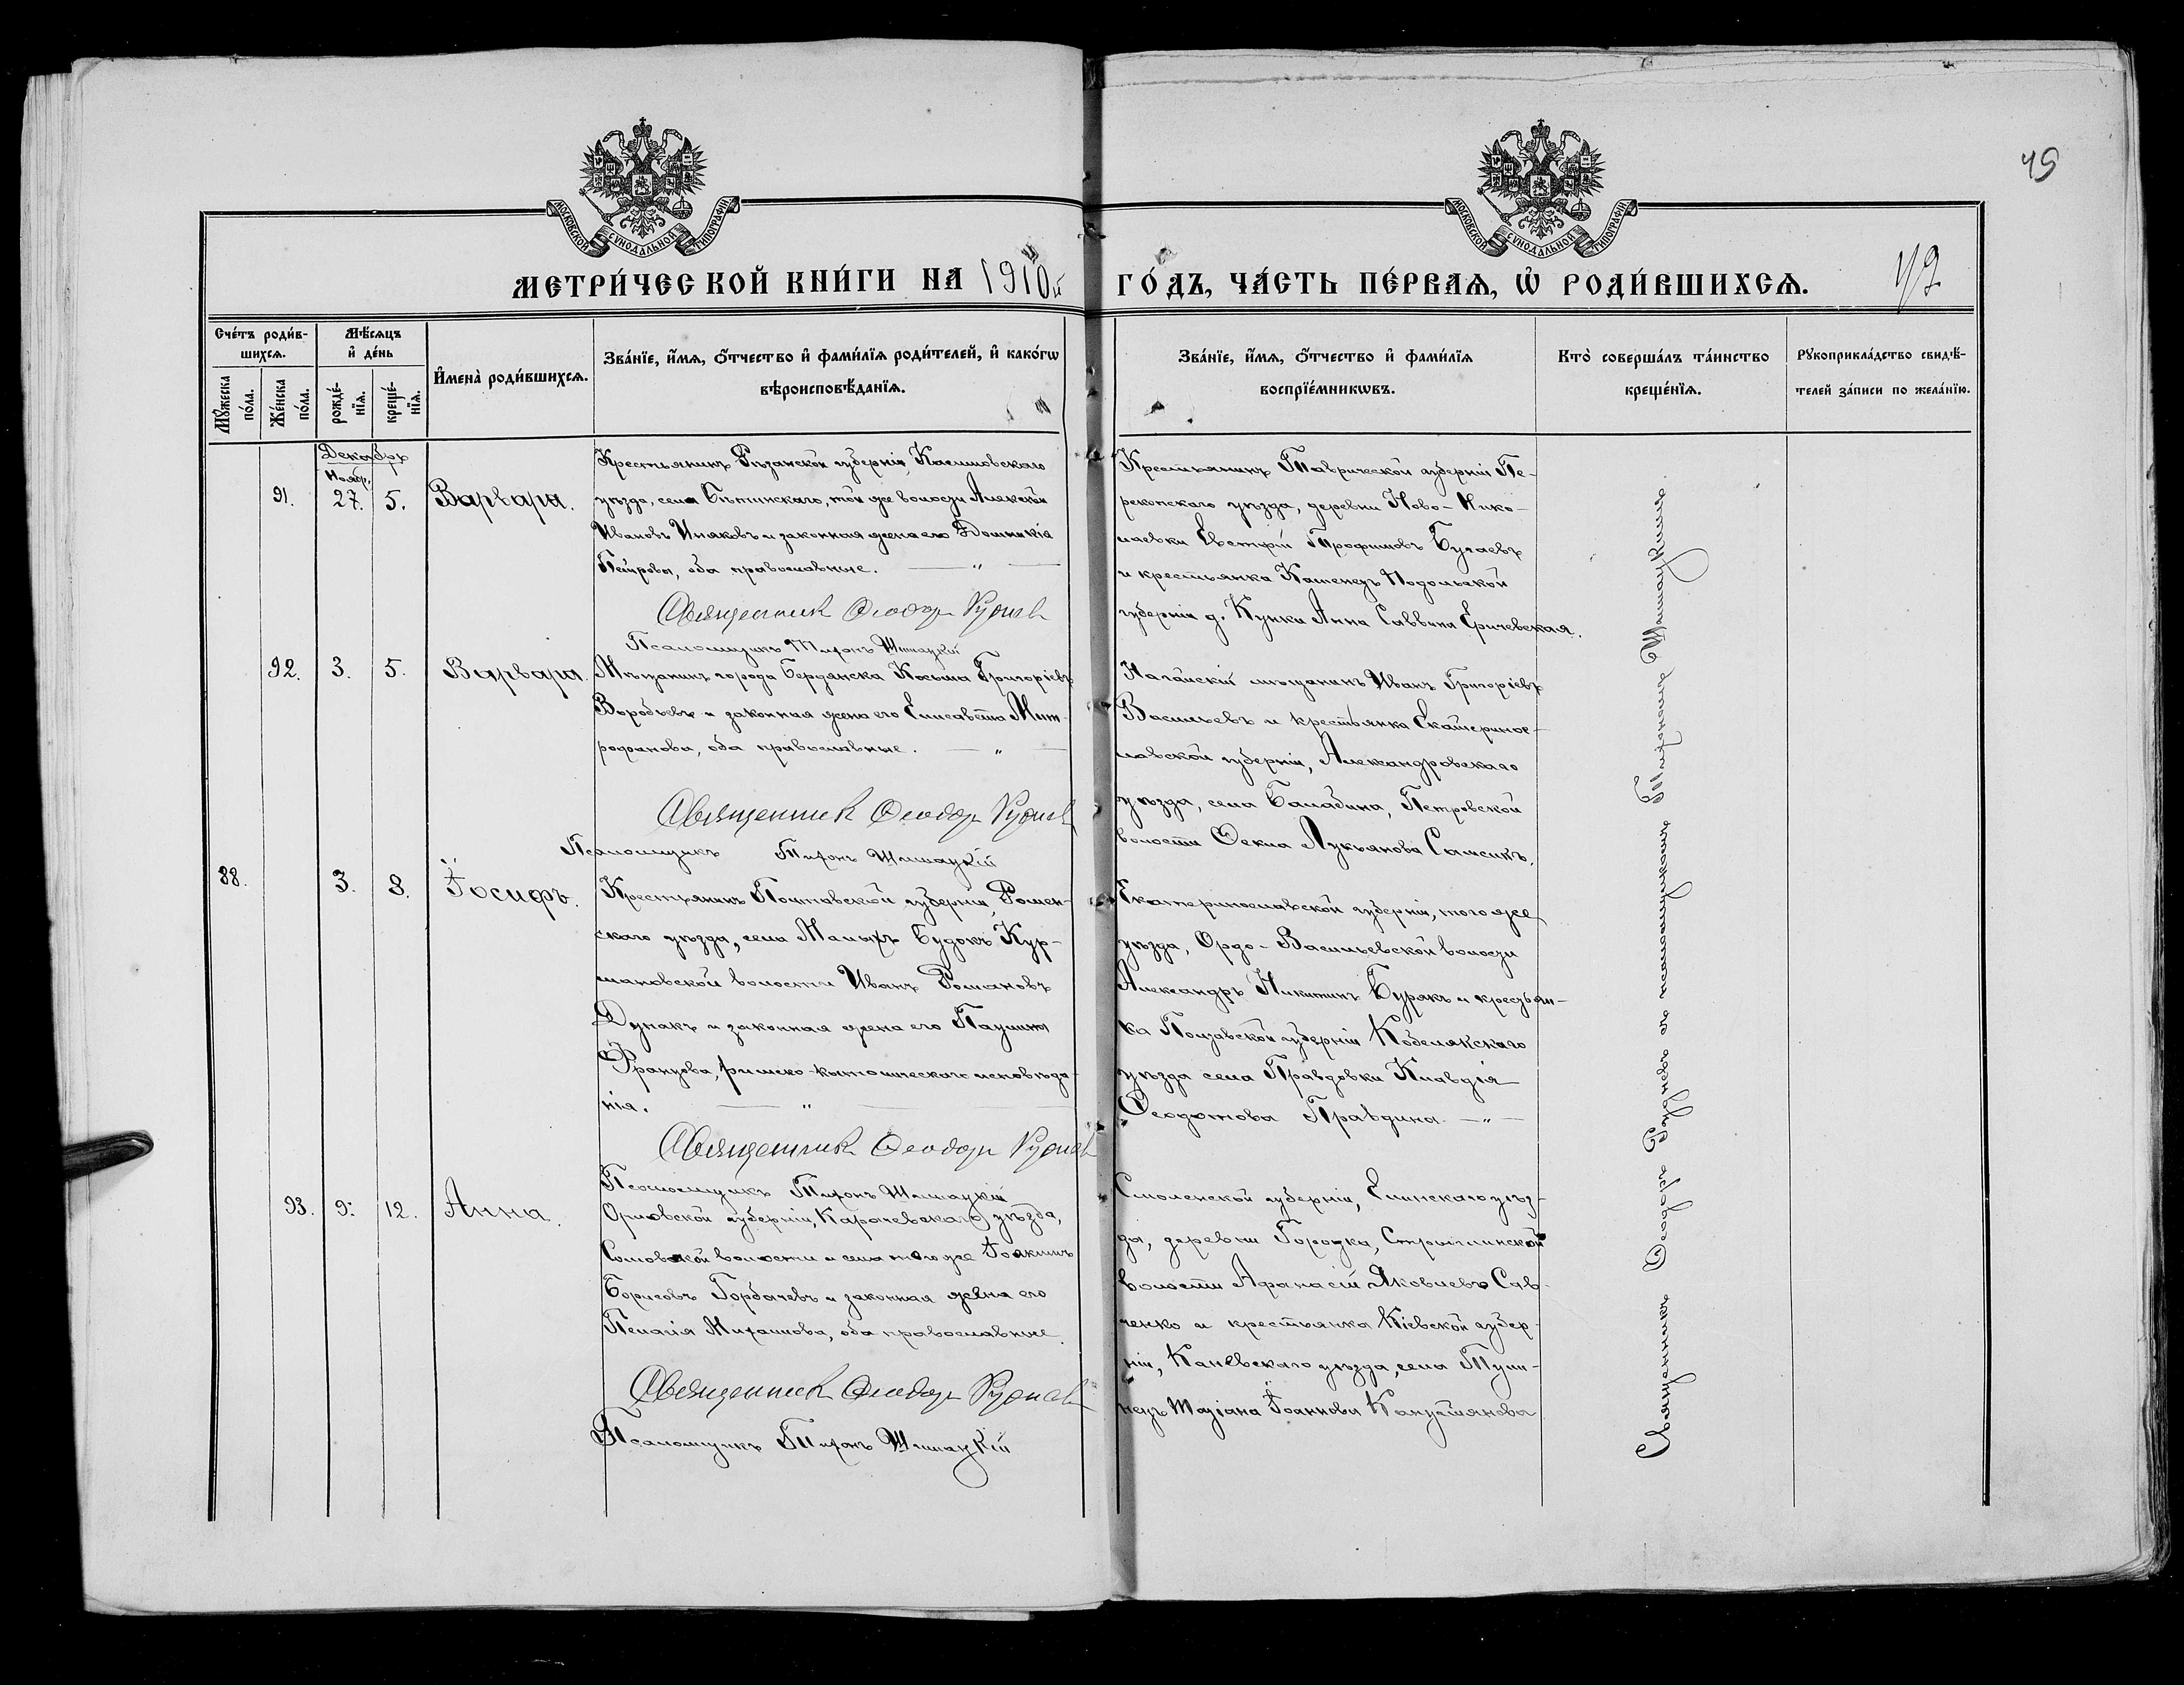 49
МОСКОВСКОЙ СУНОДАЛЬНОЙ ТИПОГРАФІИ
МОСКОВСКОЙ СУНОДАЛЬНОЙ ТИПОГРАФІИ
МЕТРИ́ЧЕСКОЙ КНИ́ГИ НА 1910й
ГО́ДЪ, ЧА́СТЬ ПЕ́РВАЯ, Ѡ РОДИ́ВШИХСЯ.
Сче́тъ роди́в-
шихся.
Мꙋ́жеска по́ла.
Же́нска по́ла.
Мѣ́сяцъ
и҆ де́нь
рожде́-
нїя.
креще́-
нїя.
И҆мена̀ роди́вшихся.
Зва́нїе, и҆́мя, ѻ҆́тчество и҆ фами́лїя роди́телей, и҆ како́гѡ
вѣроисповѣ́данїя.
Зва́нїе, и҆́мя, ѻ҆́тчество и҆ фами́лїя
воспрїе́мникѡвъ.
Кто̀ соверша́лъ та́инство
креще́нїя.
Рꙋкоприкла́дство свидѣ́-
телей за́писи по жела́нїю.
Декабрь
Нояб.
91.
27.
5.
Варвара.
Крестьянинъ Рязанской губерніи, Касимовскаго
уѣзда, села той же волости Алексѣй
Ивановъ Иняковъ и законная жена его Домникія
Петрова, оба православные. — " —
Священникъ Ѳеодоръ Рудневъ
Псаломщикъ Тихонъ Шишацкій
Крестьянинъ Таврической губерніи Пе-
рекопскаго уѣзда, деревни Ново-Нико-
лаевки Трофимовъ Бугаевъ
и крестьянка Каменецъ Подольской
губерніи д. Кунки Анна Саввина Еричевская.
92.
3.
5.
Варвара.
Мѣщанинъ города Бердянска Косьма Григоріевъ
Воробьевъ и законная жена его Елисавета Мит-
рофанова, оба православные. — " —
Священникъ Ѳеодоръ Рудневъ
Псаломщикъ Тихонъ Шишацкій
Ногайскій мѣщанинъ Иванъ Григоріевъ
Васильевъ и крестьянка Екатеринос-
лавской губерніи, Александровскаго
уѣзда, села Балабина, Петровской
волости Ѳекла Лукьянова Самсикъ.
88.
3.
8.
Іосифъ.
Крестьянинъ Полтавской губерніи, Ромен-
скаго уѣзда, села Малыхъ Будокъ Кур-
мановской волости Иванъ Романовъ
Дунакъ и законная жена его Паулина
Францова, римско-католическаго исповѣда-
нія. — " —
Священникъ Ѳеодоръ Рудневъ
Псаломщикъ Тихонъ Шишацкій
Екатеринославской губерніи, того же
уѣзда, Ордо-Васильевской волости
Александръ Никитинъ Буракъ и крестьян-
ка Полтавской губерніи Кобелякскаго
уѣзда села Правдовки Клавдія
Ѳеодотова Правдина. — " —
93.
9.
12.
Анна.
Орловской губерніи, Карачевскаго уѣзда,
волости и села того же Іоакимъ
Борисовъ Горбачевъ и законная жена его
Пелагія Михаилова, оба православные.
Священникъ Ѳеодоръ Рудневъ
Псаломщикъ Тихонъ Шишацкій
Смоленской губерніи, Елинскаго уѣз-
да, деревни Городка,
волости Афанасій Яковлевъ Сав-
ченко и крестьянка Кіевской губер-
ніи, Каневскаго уѣзда, села
Іоаннова
Священникъ Ѳеодоръ Рудневъ съ псаломщикомъ Тихономъ Шишацкимъ